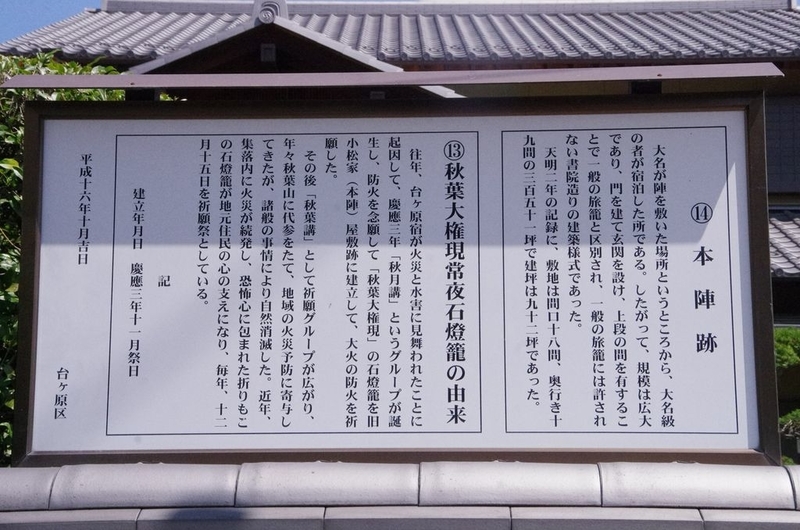 ⑭ 本陣跡
大名が陣を敷いた場所というところから、大名級
の者が宿泊した所である。したがって、規模は広大
であり、門を建て玄関を設け、上段の間を有するこ
とで一般の旅籠と区別され、一般の旅籠には許され
ない書院造りの建築様式であった。
天明二年の記録に、敷地は間口十八間、奥行き十
九間の三百五十一坪で建坪は九十二坪であった。
⑬ 秋葉大権現常夜石燈籠の由来
往年、台ヶ原宿が火災と水害に見舞われたことに
起因して、慶應三年「秋月講」というグループが誕
生し、防火を念願して「秋葉大権現」の石燈籠を旧
小松家（本陣）屋敷跡に建立して、大火の防火を祈
願した。
その後「秋葉講」として祈願グループが広がり、
年々秋葉山に代参をたて、地域の火災予防に寄与し
てきたが、諸般の事情により自然消滅した。近年、
集落内に火災が続発し、恐怖心に包まれた折りもこ
の石燈籠が地元住民の心の支えになり、毎年、十二
月十五日を祈願祭としている。
記
建立年月日 慶應三年十一月祭日
平成十六年十月吉日
台ヶ原区